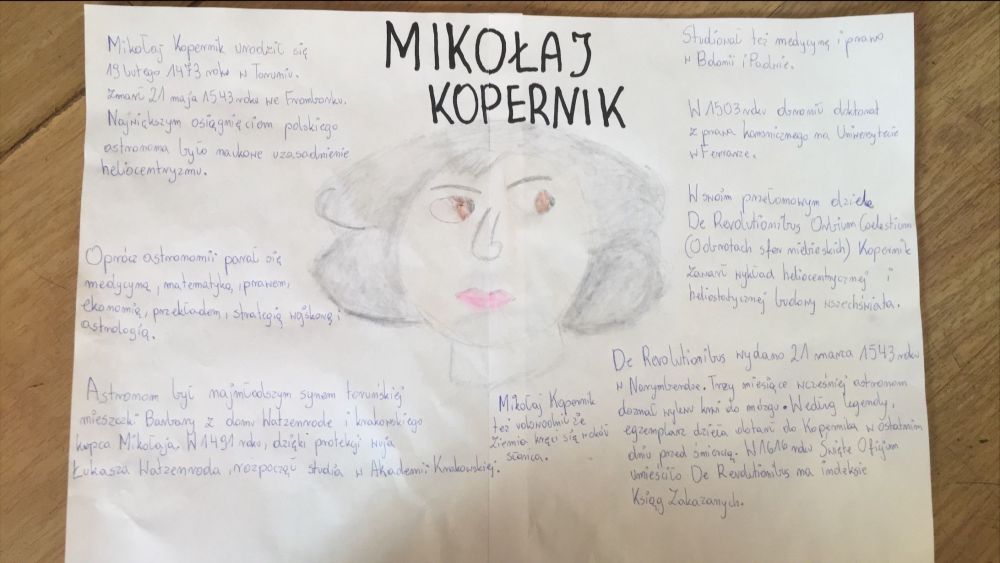 MIKOŁAJ
KOPERNIK
Mikołaj Kopernik urodził się
19 lutego 1473 roku w Toruniu.
Zmarł 21 maja 1543 roku we Fromborku.
Największym osiągnięciem polskiego
astronoma było naukowe uzasadnienie
heliocentryzmu.
Oprócz astronomii parał się
medycyną, matematyką, prawem,
ekonomią, przekładem, strategią wojskową i
astrologią.
Astronom był najmłodszym synem toruńskiej
mieszczki Barbary z domu Watzenrode i krakowskiego
kupca Mikołaja. W 1491 roku, dzięki protekcji wuja
Łukasza Watzenroda, rozpoczął studia w Akademii Krakowskiej.
Mikołaj Kopernik
też udowodnił że
Ziemia kręci się wokół
słońca.
Studiował też medycynę i prawo
w Bolonii i Padwie.
W 1503 roku obronił doktorat
z prawa kanonicznego na Uniwersytecie
w Ferrarze.
W swoim przełomowym dziele
De Revolutionibus Orbium Coelestium
(Obrotach sfer niebieskich) Kopernik
zawarł wykład heliocentrycznej i
heliostatycznej budowy wszechświata.
De Revolutionibus wydano 21 marca 1543 roku
w Norymberdze. Trzy miesiące wcześniej astronom
doznał wylewu krwi do mózgu. Według legendy,
egzemplarz dzieła dotarł do Kopernika w ostatnim
dniu przed śmiercią. W 1616 roku Święte Oficjum
umieściło De Revolutionibus na indeksie
Ksiąg Zakazanych.